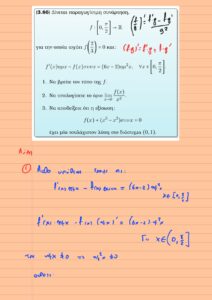 (3.60) Δίνεται παραγωγίσιμη συνάρτηση,
f : [0, π/2] → ℝ
για την οποία ισχύει f(π/2) = 0 και:
f'(x)ημx − f(x)συνx = (6x − 2)ημ²x, ∀x ∈ [0, π/2]
1. Να βρείτε τον τύπο της f.
2. Να υπολογίσετε το όριο lim x→0 f(x)/x².
3. Να αποδείξετε ότι η εξίσωση:
f(x) + (x³ − x²)συνx = 0
έχει μία τουλάχιστον λύση στο διάστημα (0, 1).
①
f'(x) ημx − f(x) συνx = (6x-2) ημ²x
x ∈ [0, π/2]
f'(x) ημx − f(x) (ημx)' = (6x-2) ημ²x
x ∈ (0, π/2]
ημx ≠ 0 ημ²x ≠ 0